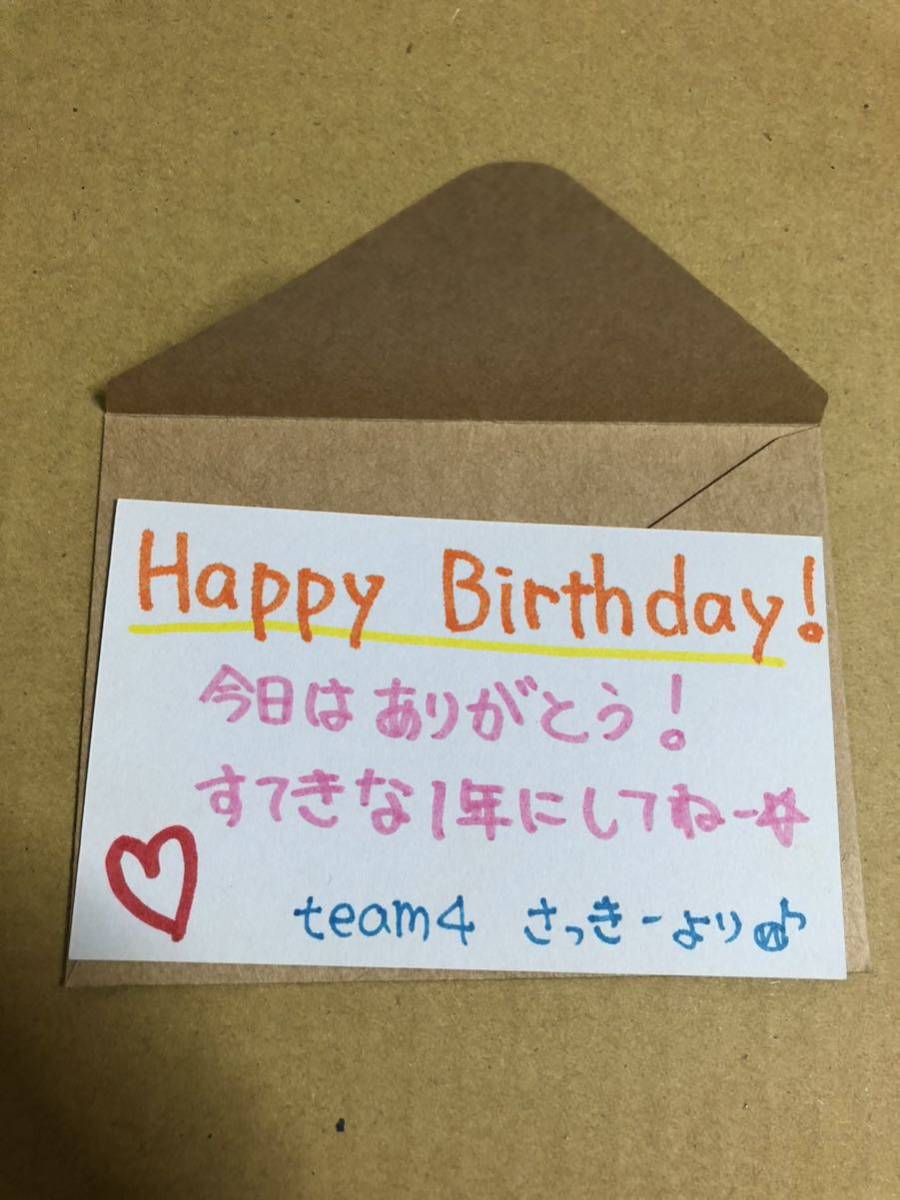 Happy Birthday!
今日はありがとう!
すてきな1年にしてねー☆
team4 さっきーより♪